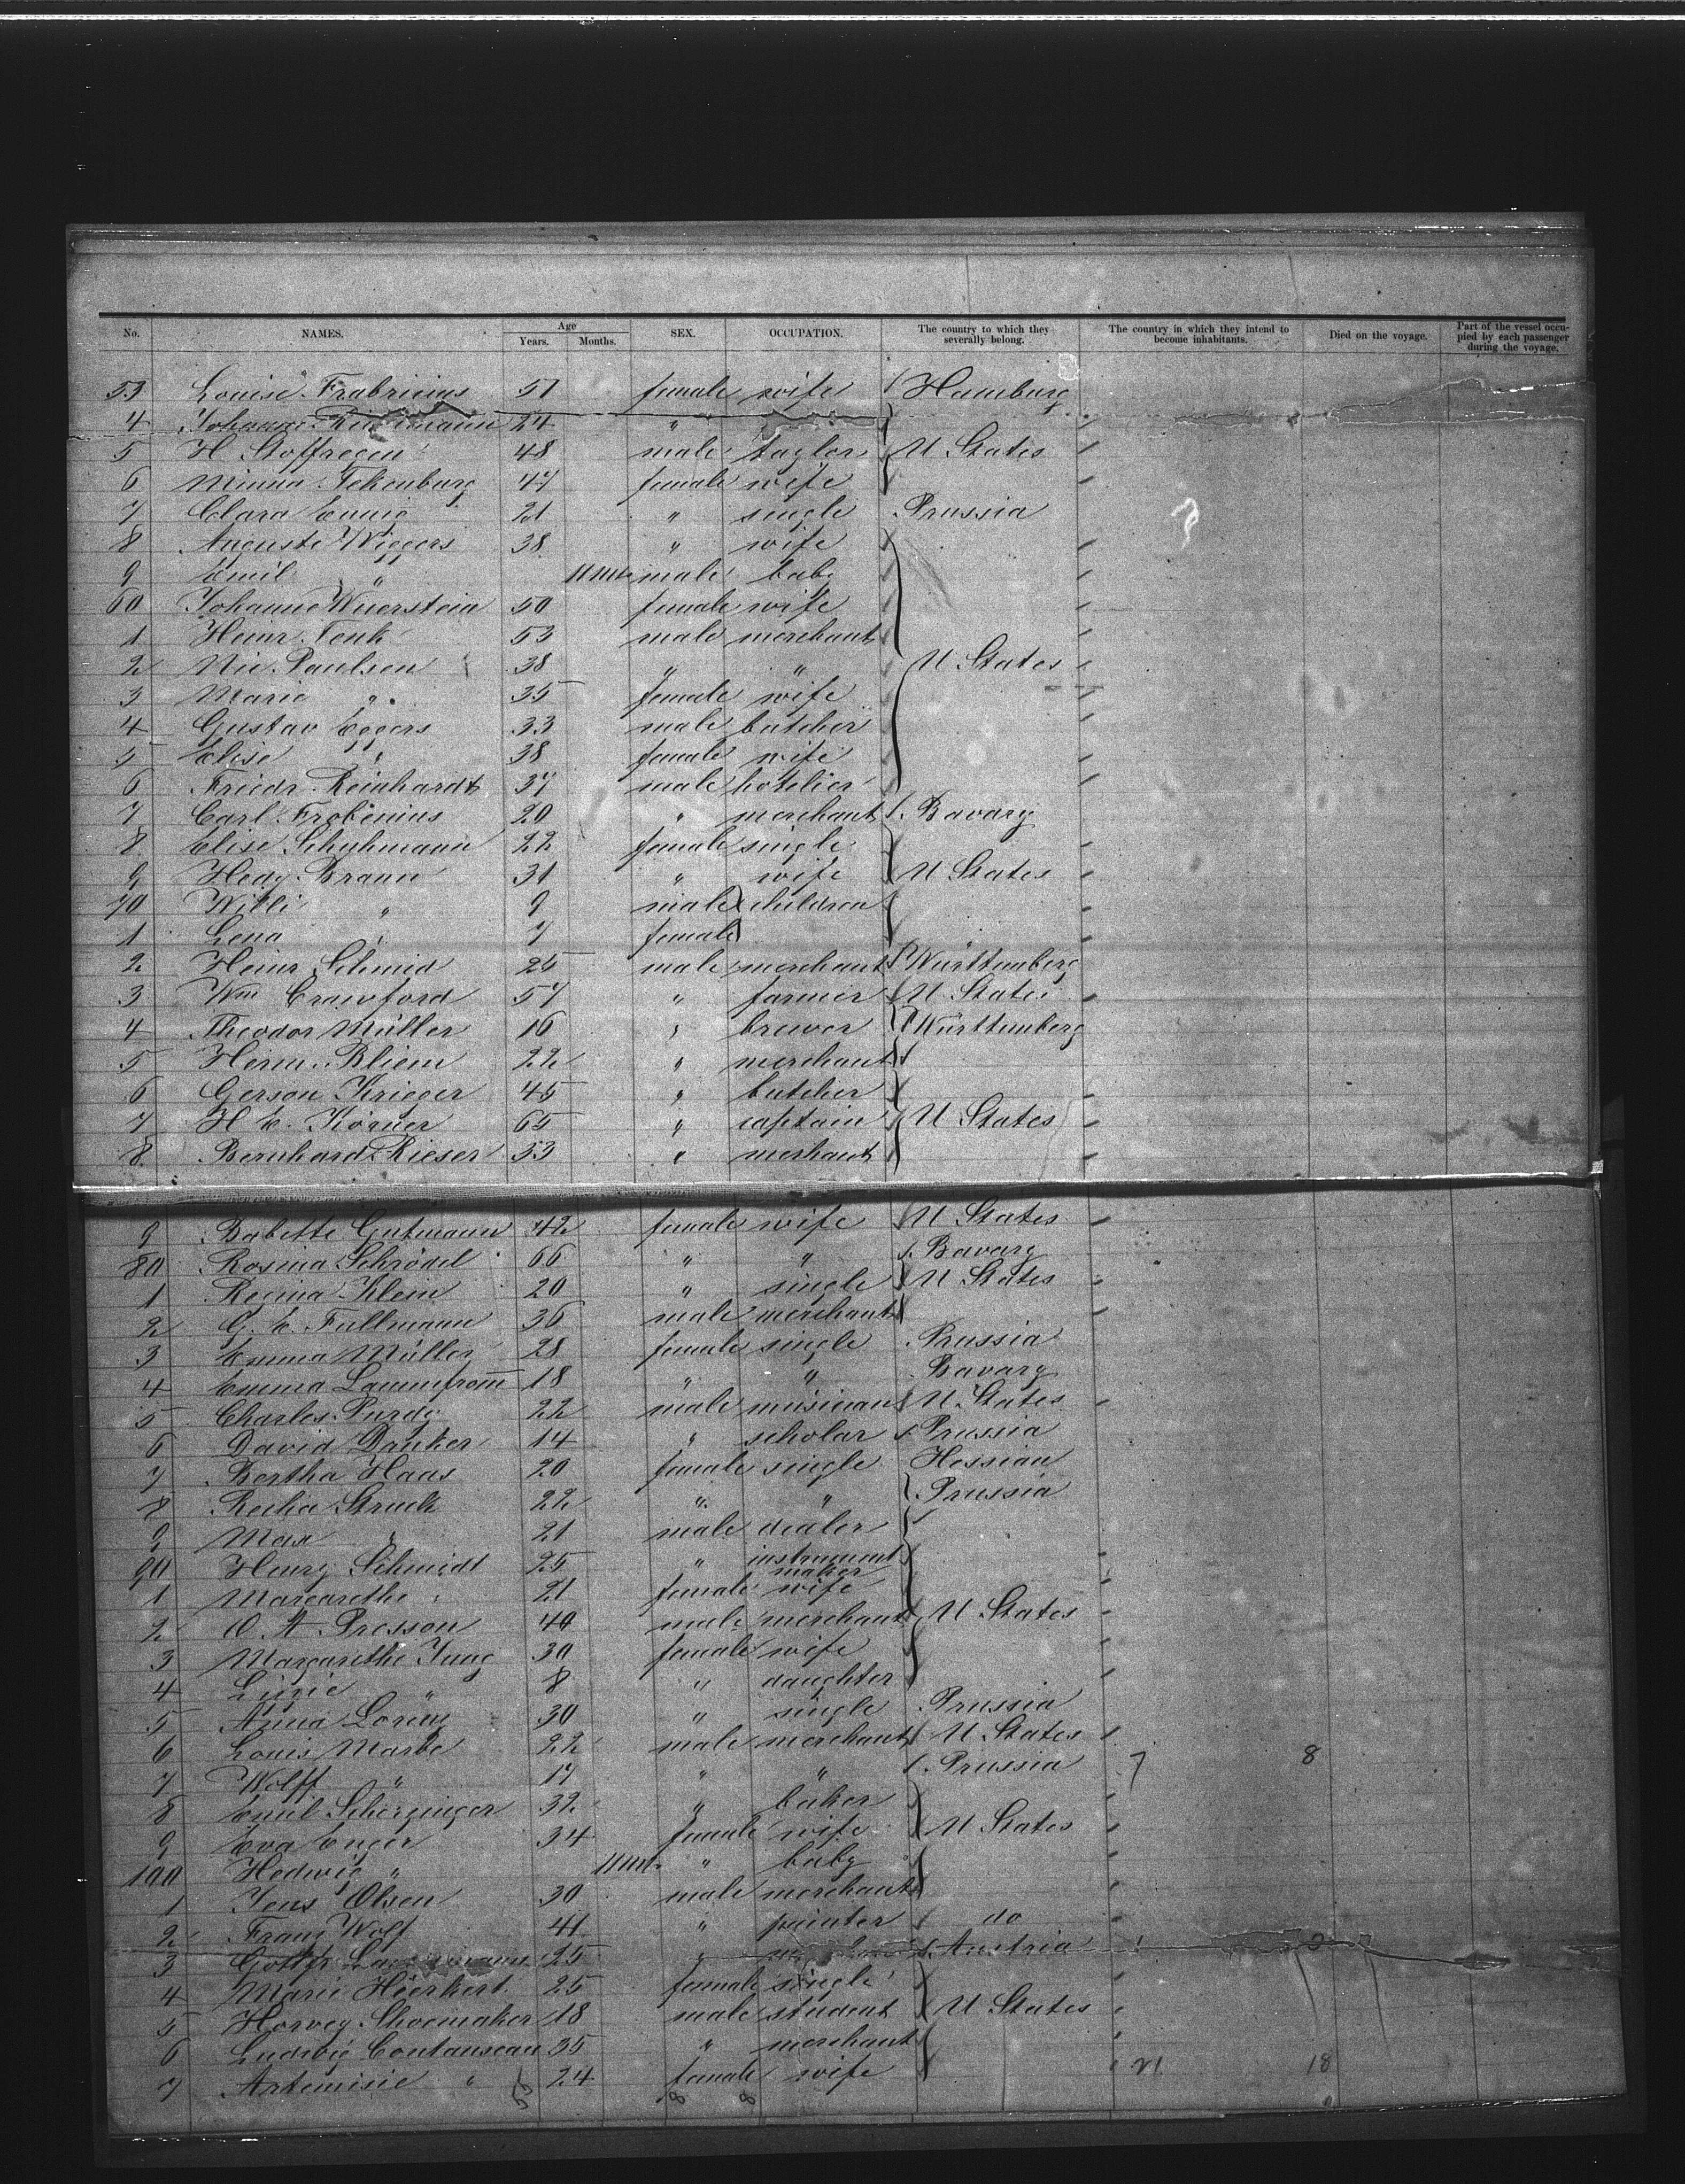 No. NAMES. Age Years. Months. SEX. OCCUPATION. The country to which they severally belong. The country in which they intend to become inhabitants. Died on the voyage. Part of the vessel occupied by each passenger during the voyage.
53 Louise Frabricius 57 female wife Hamburg
4 Johanne 24 "
5 H Stoffregen 48 male taylor U States
6 Minna Tekenburg 47 female wife
7 Clara Ennig 21 " single Prussia
8 Auguste Wiggers 38 " wife
9 Emil " 11 mt. male baby
60 Johanne Wuerstein 50 female wife
1 Heinr. Tenk 53 male merchant
2 Nic. Paulsen 38 " " U States
3 Marie " 35 female wife
4 Gustav Eggers 33 male butcher
5 Elise " 38 female wife
6 Friedr. Reinhardt 37 male hotelier
7 Carl Frobenius 20 " merchant Bavary
8 Elise Schuhmann 22 female single
9 Hedg. Braun 31 " wife U States
70 Willi " 9 male children
1 Lena " 7 female
2 Heinr. Schmid 25 male merchant Württemberg
3 Wm Crawford 57 " farmer U States
4 Theodor Müller 16 " brewer Württemberg
5 Herm. Bliem 22 " merchant
6 Gerson Krieger 45 " butcher
7 H E. Körner 65 " captain U States
8 Bernhard Rieser 53 " merhant
9 Babette Gutmann 42 female wife U States
80 Rosina Schrödel 66 " " Bavary
1 Regina Klein 20 " single U States
2 G. E. Fullmann 36 male merchant
3 Emma Müller 28 female single Prussia
4 Emma Lammfrom̅ 18 " " Bavary
5 Charles Purdy 22 male musician U States
6 David Druker 14 " scholar Prussia
7 Bertha Haas 20 female single Hessian
8 Recha Struck 22 " " Prussia
9 Max " 21 male dealer
90 Henry Schmidt 25 " instrument maker
1 Margarethe " 21 female wife
2 O. A. Presson 40 male merchant U States
3 Margarethe Jung 30 female wife
4 Lizzie " 8 " daughter
5 Anna Lorenz 30 " single Prussia
6 Louis Marbe 22 male merchant U States
7 Wolff " 17 " " Prussia 7 8
8 Emil Scherzinger 32 " baker
9 Eva Enger 34 female wife U States
100 Hedwig " 11 mt. " baby
1 Jens Olsen 30 male merchant
2 Franz Wolf 41 " painter do
3 Gottfr. 25 " Austria
4 Marie Höerkert 25 female single
5 Horvey Shoemaker 18 male student U States
6 Ludwig Coutanseau 35 " merchant
7 Artemisie " 24 female wife 21 18